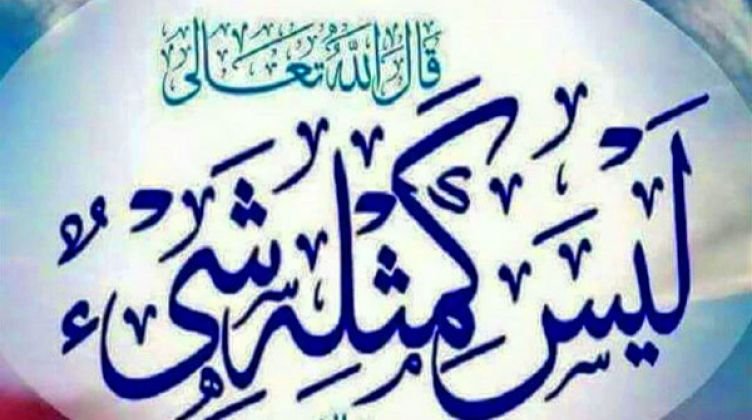 قَالَ اللَّهُ تَعَالَى
لَيْسَ كَمِثْلِهِ شَيْءٌ